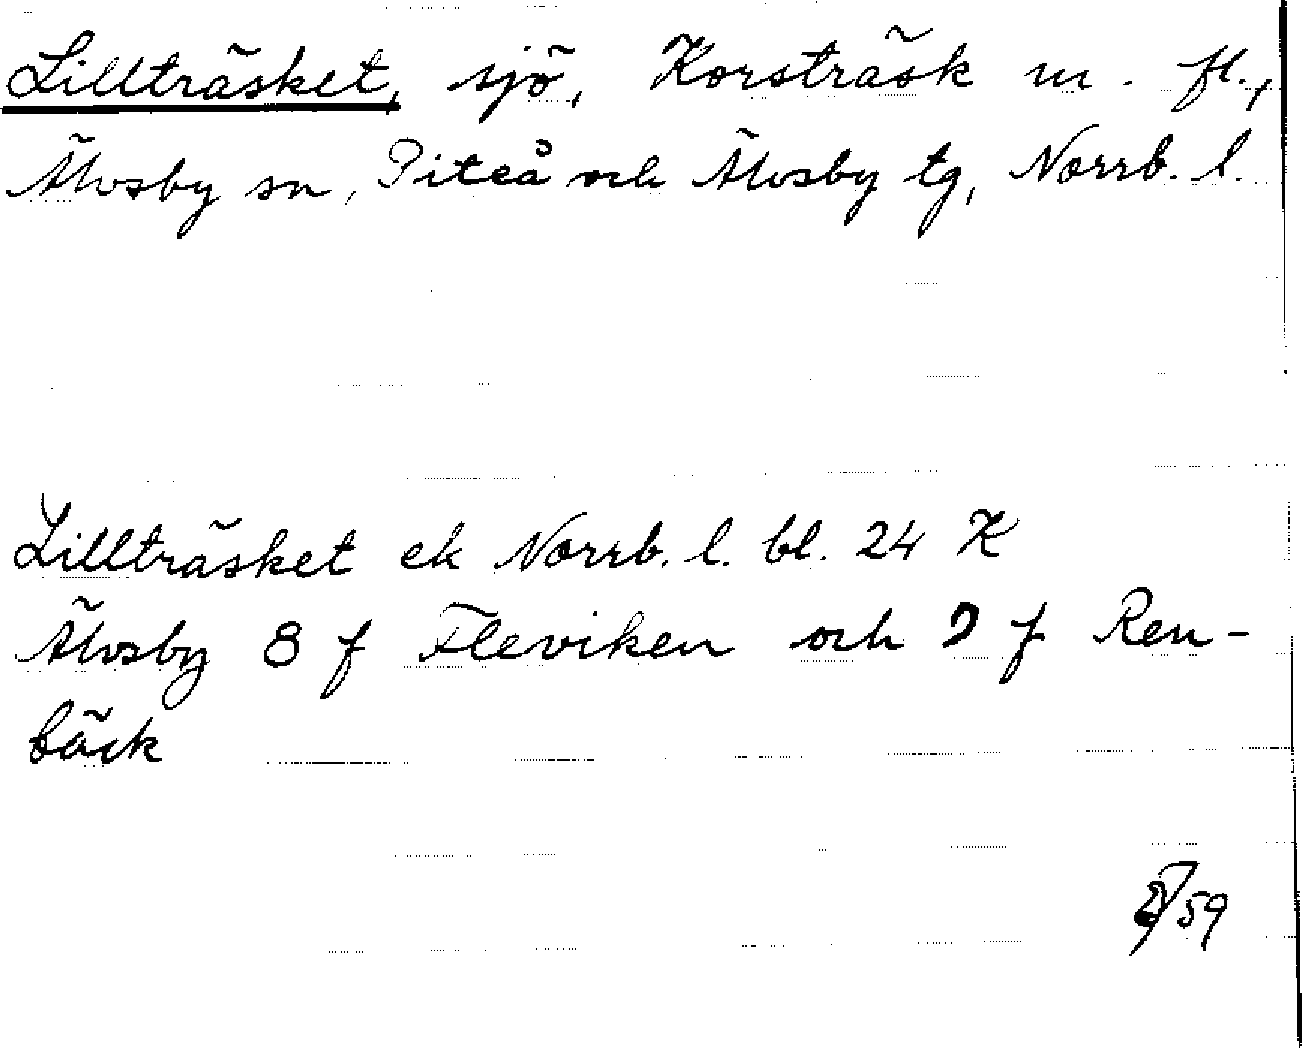 Lillträsket, sjö, Korsträsk m. fl.,
Älvsby sn, Piteå och Älvsby tg, Norrb. l.
Lillträsket ek Norrb. l. bl. 24 K
Älvsby 8 f Fleviken och 9 f Ren-
bäck
59